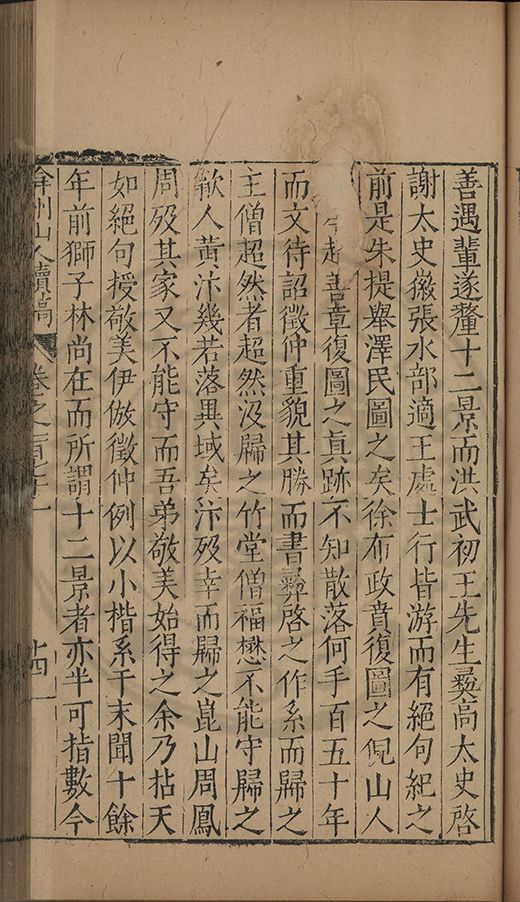 善遇輩遂釐十二景而洪武初王先生彝高太史啓
謝太史徽張水部適王處士行皆游而有絕句紀之
前是朱提舉澤民圖之矣徐布政賁復圖之倪山人
趙善章復圖之真跡不知散落何手百五十年
而文待詔徵仲重貌其勝而書彝啓之作系而歸之
主僧超然者超然沒歸之竹堂僧福懋不能守歸之
歙人黃汴幾若落異域矣汴歿幸而歸之崑山周鳳
周歿其家又不能守而吾弟敬美始得之余乃拈天
如絕句授敬美伊倣徵仲例以小楷系于末聞十餘
年前獅子林尚在而所謂十二景者亦半可指數今
弇州山人續稿 卷之一百七十一